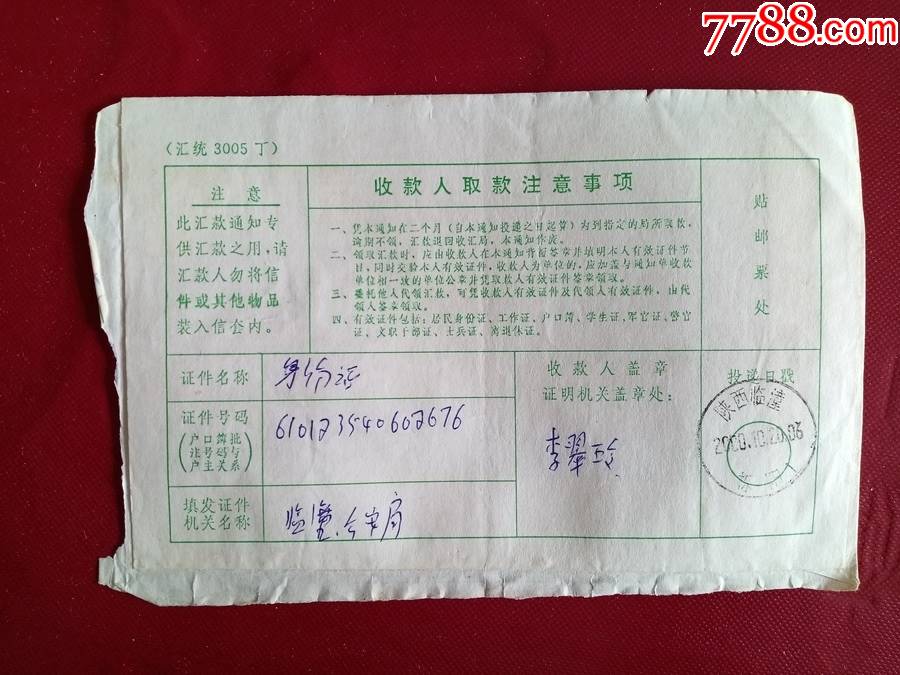 7788.com
（汇统 3005 丁）
注 意
此汇款通知专
供汇款之用,请
汇款人勿将信
件或其他物品
装入信套内。
收款人取款注意事项
一、凭本通知在二个月（自本通知投递之日起算）为到指定的局所取款，
逾期不领，汇款退回收汇局，本通知作废。
二、领取汇款时，应由收款人在本通知背面签章并填明本人有效证件节
目，同时交验本人有效证件，收款人为单位的，应加盖与通知单收款
单位相一致的单位公章并凭取款人有效证件签章领取。
三、委托他人代领汇款，可凭收款人有效证件及代领人有效证件，由代
领人签章领取。
四、有效证件包括：居民身份证、工作证、户口簿、学生证、军官证、警官
证、文职干部证、士兵证、离退休证。
贴
邮
票
处
证件名称
身份证
证件号码
（户口簿批
准号码与
户主关系）
610123540602676
填发证件
机关名称
临潼公安局
收款人盖章
证明机关盖章处：
李翠玲
投递日戳
陕西临潼
2000.10.20.06